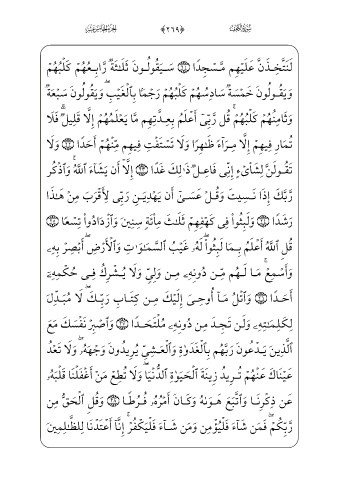 سُورَةُ الكَهْفِ ﴿٢٦٩﴾ الجُزْءُ الخَامِسَ عَشَرَ
لَنَتَّخِذَنَّ عَلَيْهِم مَّسْجِدًا ۝ سَيَقُولُونَ ثَلَـٰثَةٌ رَّابِعُهُمْ كَلْبُهُمْ
وَيَقُولُونَ خَمْسَةٌ سَادِسُهُمْ كَلْبُهُمْ رَجْمًۢا بِٱلْغَيْبِ ۖ وَيَقُولُونَ سَبْعَةٌ
وَثَامِنُهُمْ كَلْبُهُمْ ۚ قُل رَّبِّىٓ أَعْلَمُ بِعِدَّتِهِم مَّا يَعْلَمُهُمْ إِلَّا قَلِيلٌ ۗ فَلَا
تُمَارِ فِيهِمْ إِلَّا مِرَآءً ظَـٰهِرًا وَلَا تَسْتَفْتِ فِيهِم مِّنْهُمْ أَحَدًا ۝ وَلَا
تَقُولَنَّ لِشَاىْءٍ إِنِّى فَاعِلٌ ذَٰلِكَ غَدًا ۝ إِلَّآ أَن يَشَآءَ ٱللَّهُ ۚ وَٱذْكُر
رَّبَّكَ إِذَا نَسِيتَ وَقُلْ عَسَىٰٓ أَن يَهْدِيَنِ رَبِّى لِأَقْرَبَ مِنْ هَـٰذَا
رَشَدًا ۝ وَلَبِثُوا۟ فِى كَهْفِهِمْ ثَلَـٰثَ مِا۟ئَةٍ سِنِينَ وَٱزْدَادُوا۟ تِسْعًا ۝
قُلِ ٱللَّهُ أَعْلَمُ بِمَا لَبِثُوا۟ ۖ لَهُۥ غَيْبُ ٱلسَّمَـٰوَٰتِ وَٱلْأَرْضِ ۖ أَبْصِرْ بِهِۦ
وَأَسْمِعْ ۚ مَا لَهُم مِّن دُونِهِۦ مِن وَلِىٍّ وَلَا يُشْرِكُ فِى حُكْمِهِۦٓ
أَحَدًا ۝ وَٱتْلُ مَآ أُوحِىَ إِلَيْكَ مِن كِتَابِ رَبِّكَ ۖ لَا مُبَدِّلَ
لِكَلِمَـٰتِهِۦ وَلَن تَجِدَ مِن دُونِهِۦ مُلْتَحَدًا ۝ وَٱصْبِرْ نَفْسَكَ مَعَ
ٱلَّذِينَ يَدْعُونَ رَبَّهُم بِٱلْغَدَوٰةِ وَٱلْعَشِىِّ يُرِيدُونَ وَجْهَهُۥ ۖ وَلَا تَعْدُ
عَيْنَاكَ عَنْهُمْ تُرِيدُ زِينَةَ ٱلْحَيَوٰةِ ٱلدُّنْيَا ۖ وَلَا تُطِعْ مَنْ أَغْفَلْنَا قَلْبَهُۥ
عَن ذِكْرِنَا وَٱتَّبَعَ هَوَىٰهُ وَكَانَ أَمْرُهُۥ فُرُطًا ۝ وَقُلِ ٱلْحَقُّ مِن
رَّبِّكُمْ ۖ فَمَن شَآءَ فَلْيُؤْمِن وَمَن شَآءَ فَلْيَكْفُرْ ۚ إِنَّآ أَعْتَدْنَا لِلظَّـٰلِمِينَ